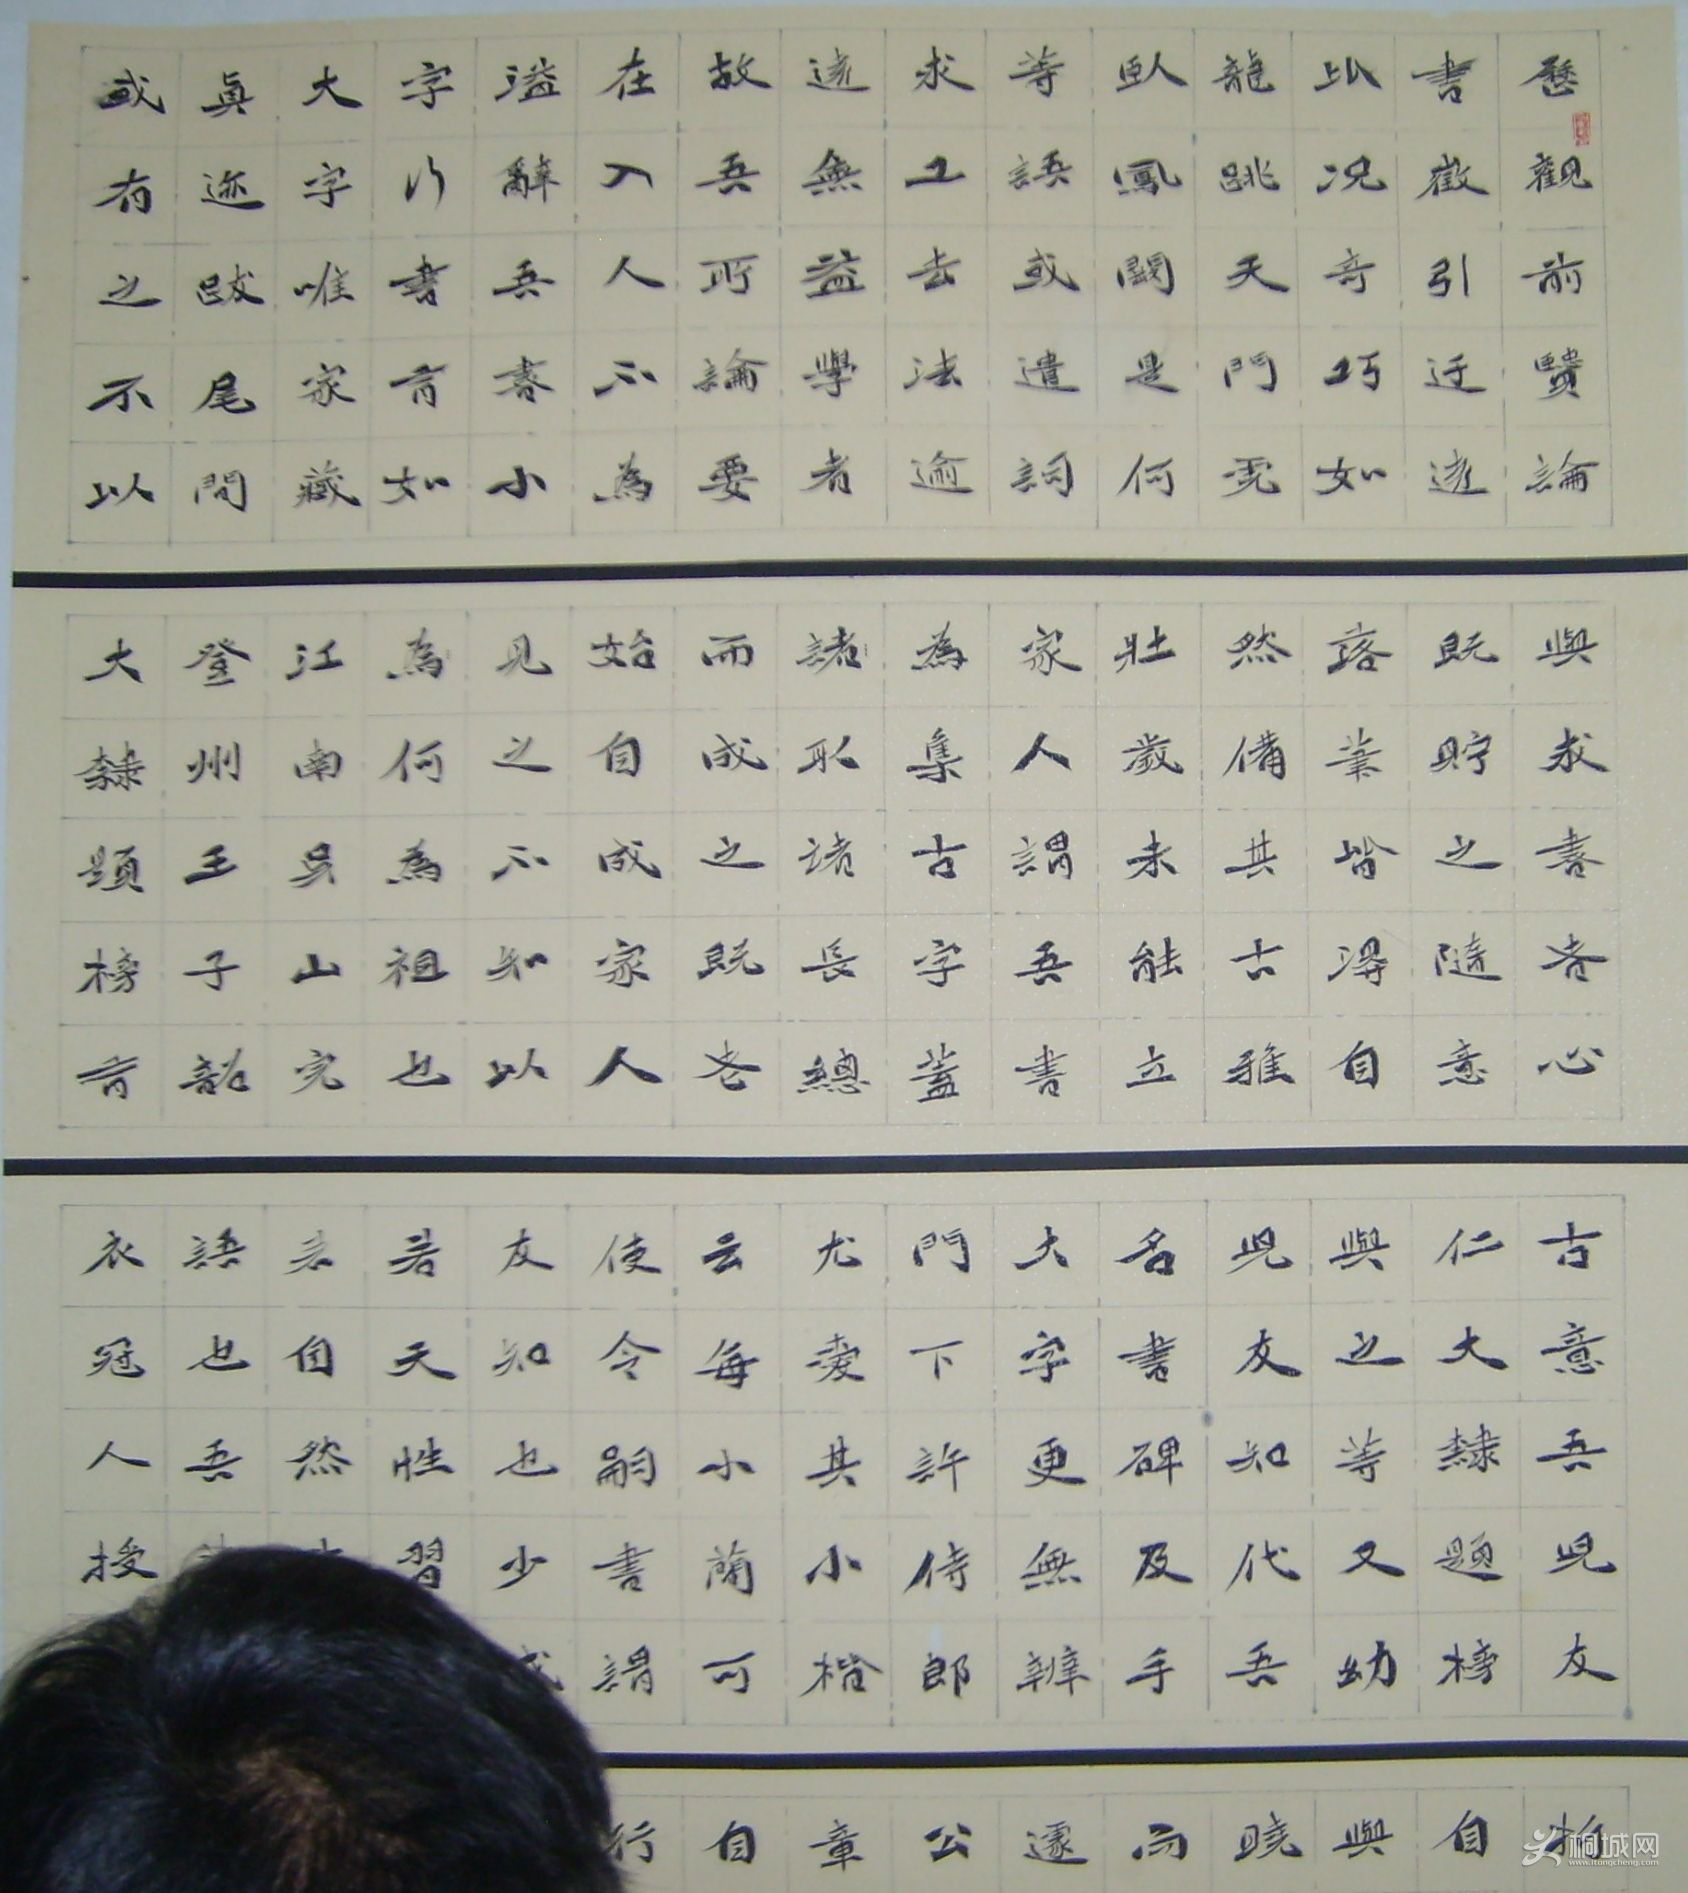 歷觀前賢論
書徵引迂遠
比況奇巧如
龍跳天門虎
臥鳳闕是何
等語或遣詞
求工去法逾
遠無益學者
故吾所論要
在入人不為
溢辭吾書小
字行書有如
大字唯家藏
真迹跋尾間
或有之不以
與求書者心
既貯之隨意
落筆皆得自
然備其古雅
壯歲未能立
家人謂吾書
為集古字蓋
諸取諸長總
而成之既老
始自成家人
見之不知以
為何為祖也
江南吳山完
登州王子韶
大隸題榜有
古意吾兒友
仁大隸題榜
與之等又幼
兒友知代吾
名書碑及手
大字更無辨
門下許侍郎
尤愛其小楷
云每小簡可
使令嗣書謂
友知也少成
若天性習
若自然
語也吾
衣冠人授
折
自
與
曉
而
遂
公
章
自
行
桐城网
www.itongcheng.com